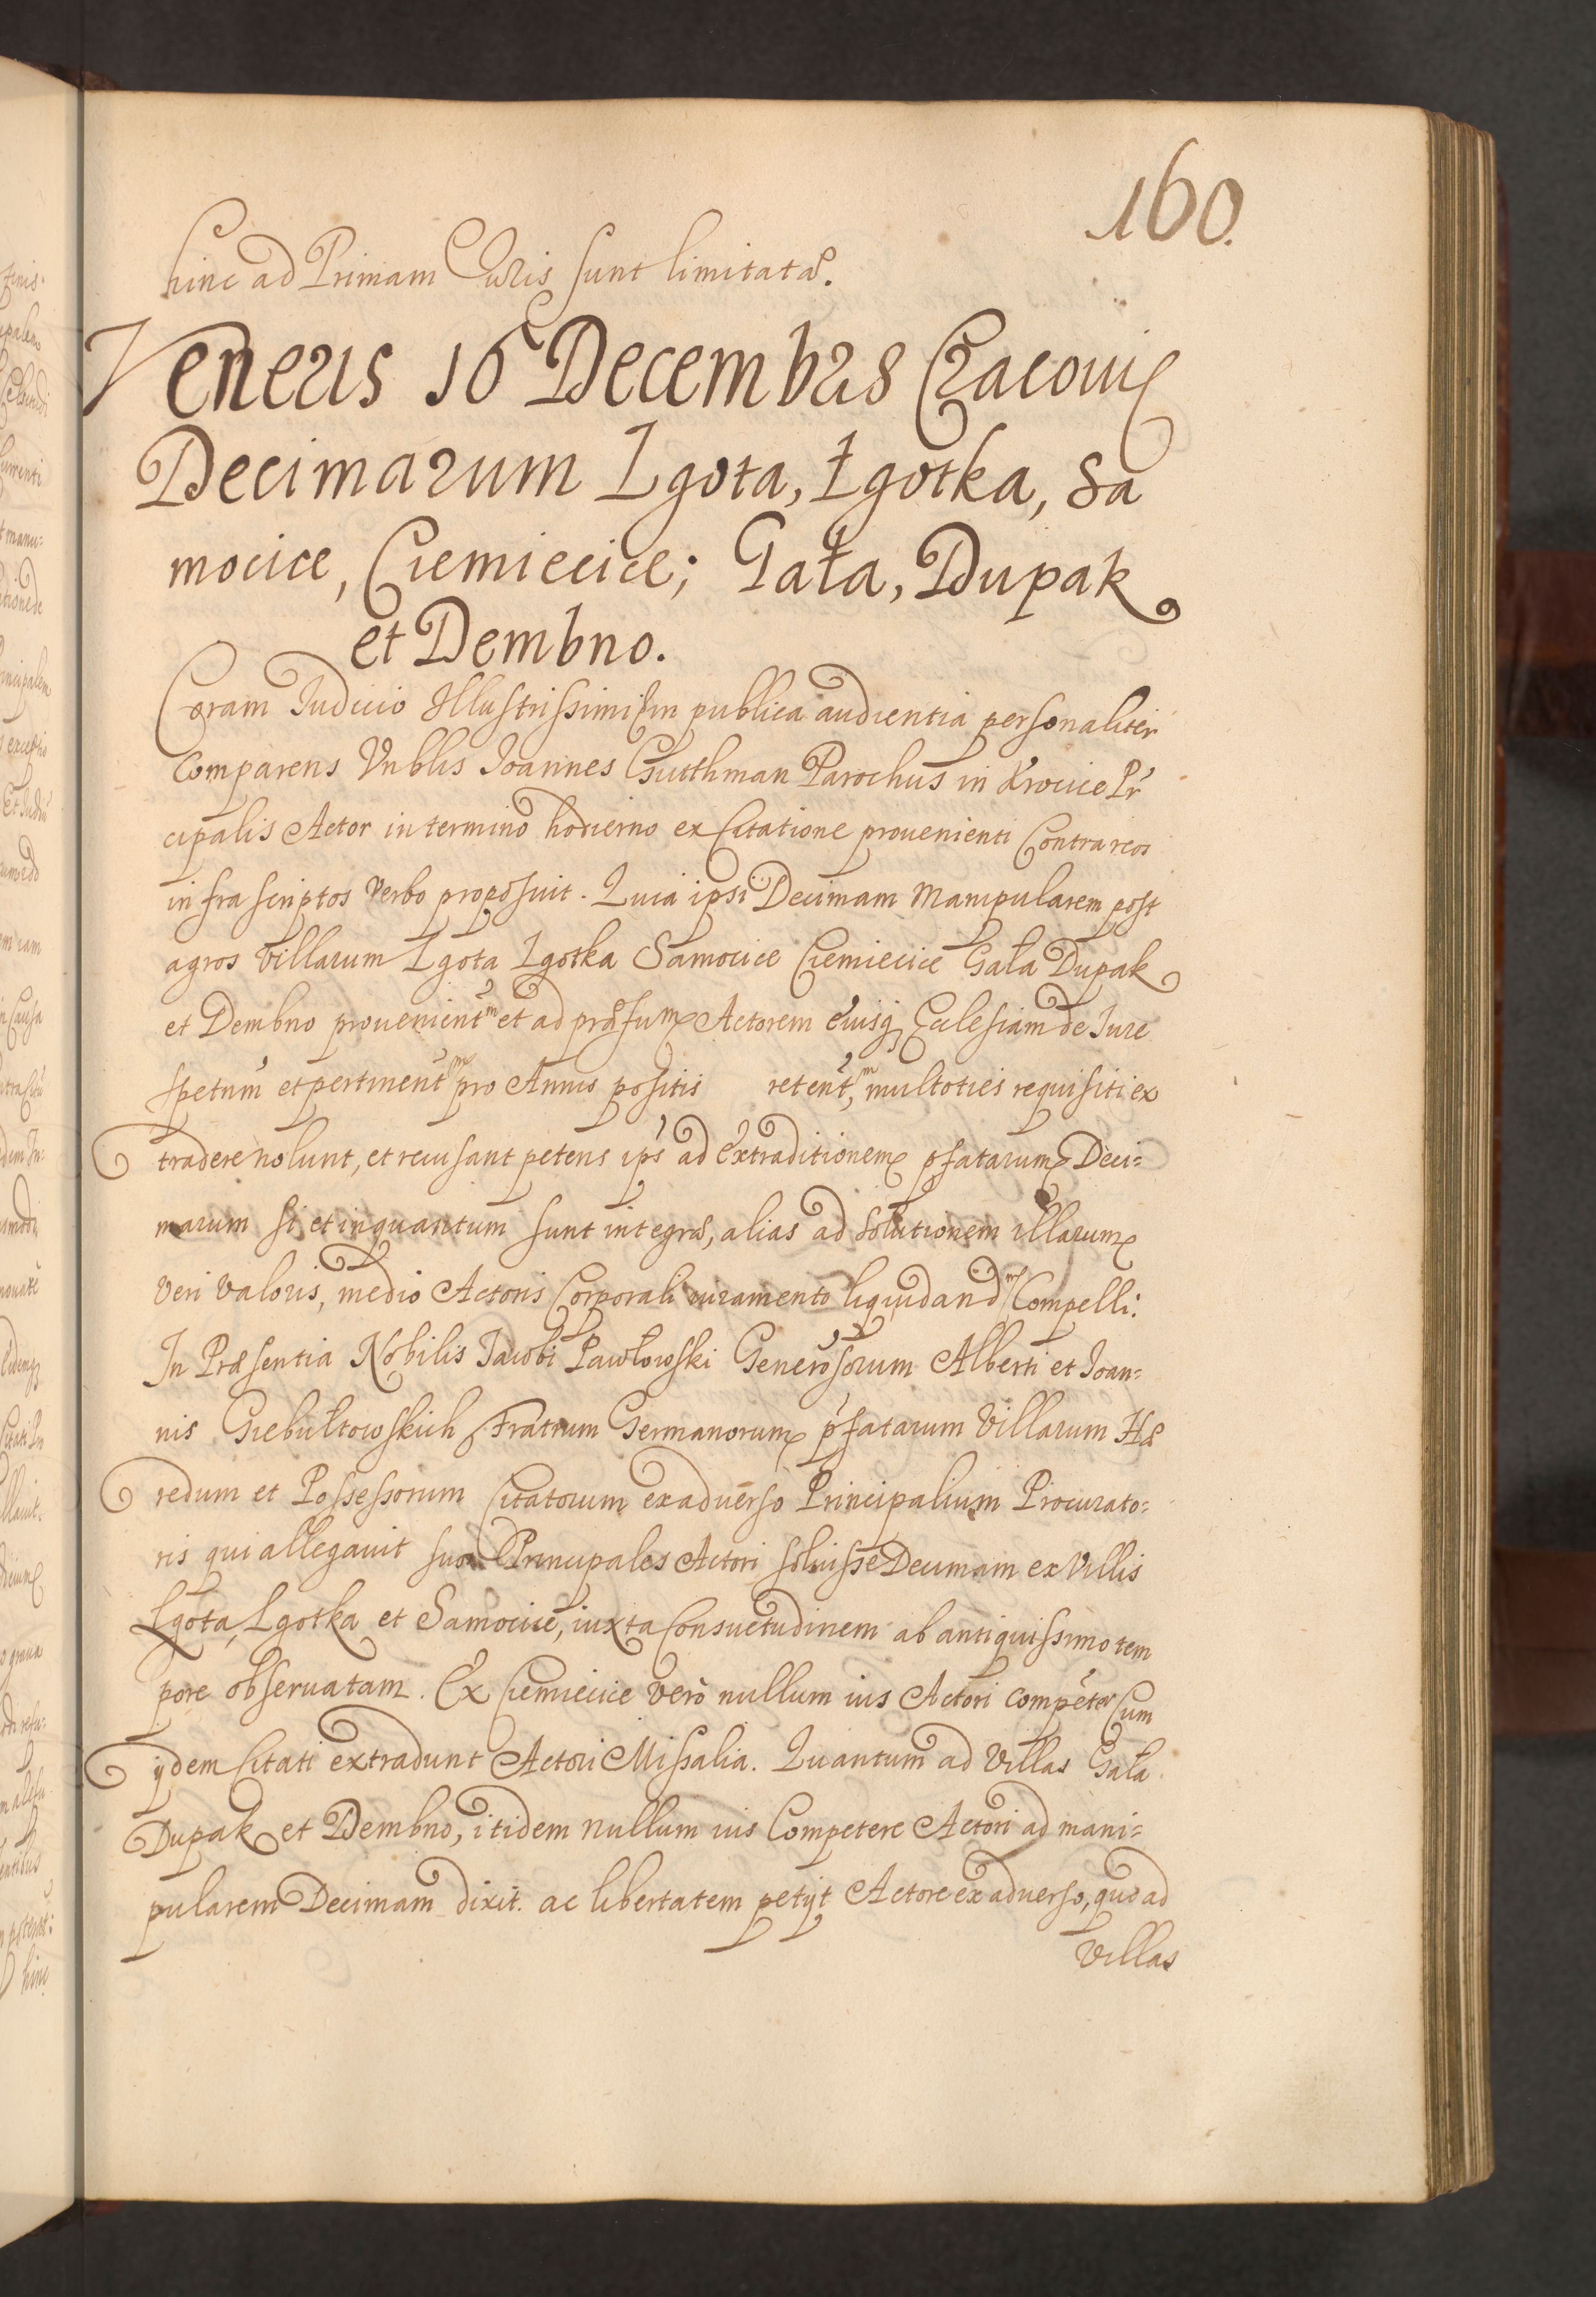 160.
hinc ad Primam Iuris sunt limitatæ.
Veneris 16 Decembris Cracouię
Decimarum Lgota, Łgotka, Sa
mocice, Ciemiecice; Gała, Dupak
et Dembno.
Coram Iudicio Illustrissimi in publica audientia personaliter
Comparens Vnblis Ioannes Gutthman Parochus in Krocice Pr
cipalis Actor in termino hodierno ex Citatione prouenienti Contra reos
infra scriptos verbo proposuit. Quia ipsi Decimam Manipularem post
agros Villarum Lgota Lgotka Samocice Ciemiecice Gała Dupak
et Dembno prouenient᷑ᵐ et ad præsum Actorem eiusq Ecclesiam de Iure
spetum̄ et pertinent᷑ᵐ pro Annis positis retent᷑,ᵐ multoties requisiti ex
tradere nolunt, et recusant petens ips ad extraditionem pfatarum Deci=
marum si et inquantum sunt integræ, alias ad solutionem illarum
veri valoris, medio Actoris Corporali iuramento liquidandᵐ Compelli:
In Præsentia Nobilis Iacobi Pawłowski Generosorum Alberti et Ioan=
nis Giebułtowskich Fratrum Germanorum pfatarum Villarum Hæ
redum et Possessorum Citatorum ex aduerso Principalium Procurato=
ris qui allegauit suos Principales Actori soluisse Decimam ex Villis
Lgota, Lgotka et Samocice, iuxta Consuetudinem ab antiquissimo tem
pore obseruatam. Ex Ciemiecice vero nullum ius Actori competer Cum
ijdem Citati extradunt Actori Missalia. Quantum ad Villas Gała
Dupak et Dembno, itidem nullum ius Competere Actori ad mani=
pularem Decimam dixit. ac libertatem petijt Actore ex aduerso, quo ad
Villas